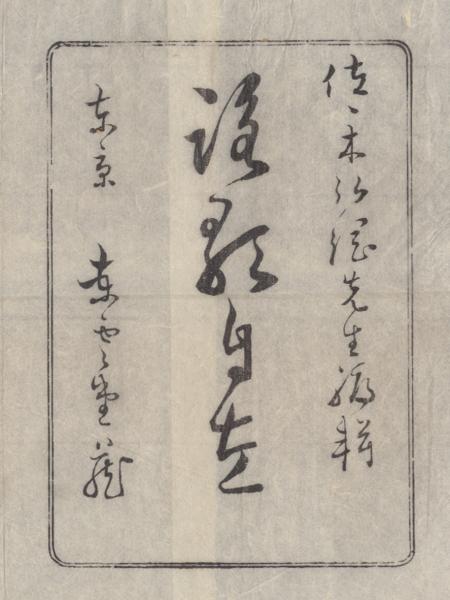 佐々木弘綱先生編輯
詠歌自在
東京 東雲堂蔵